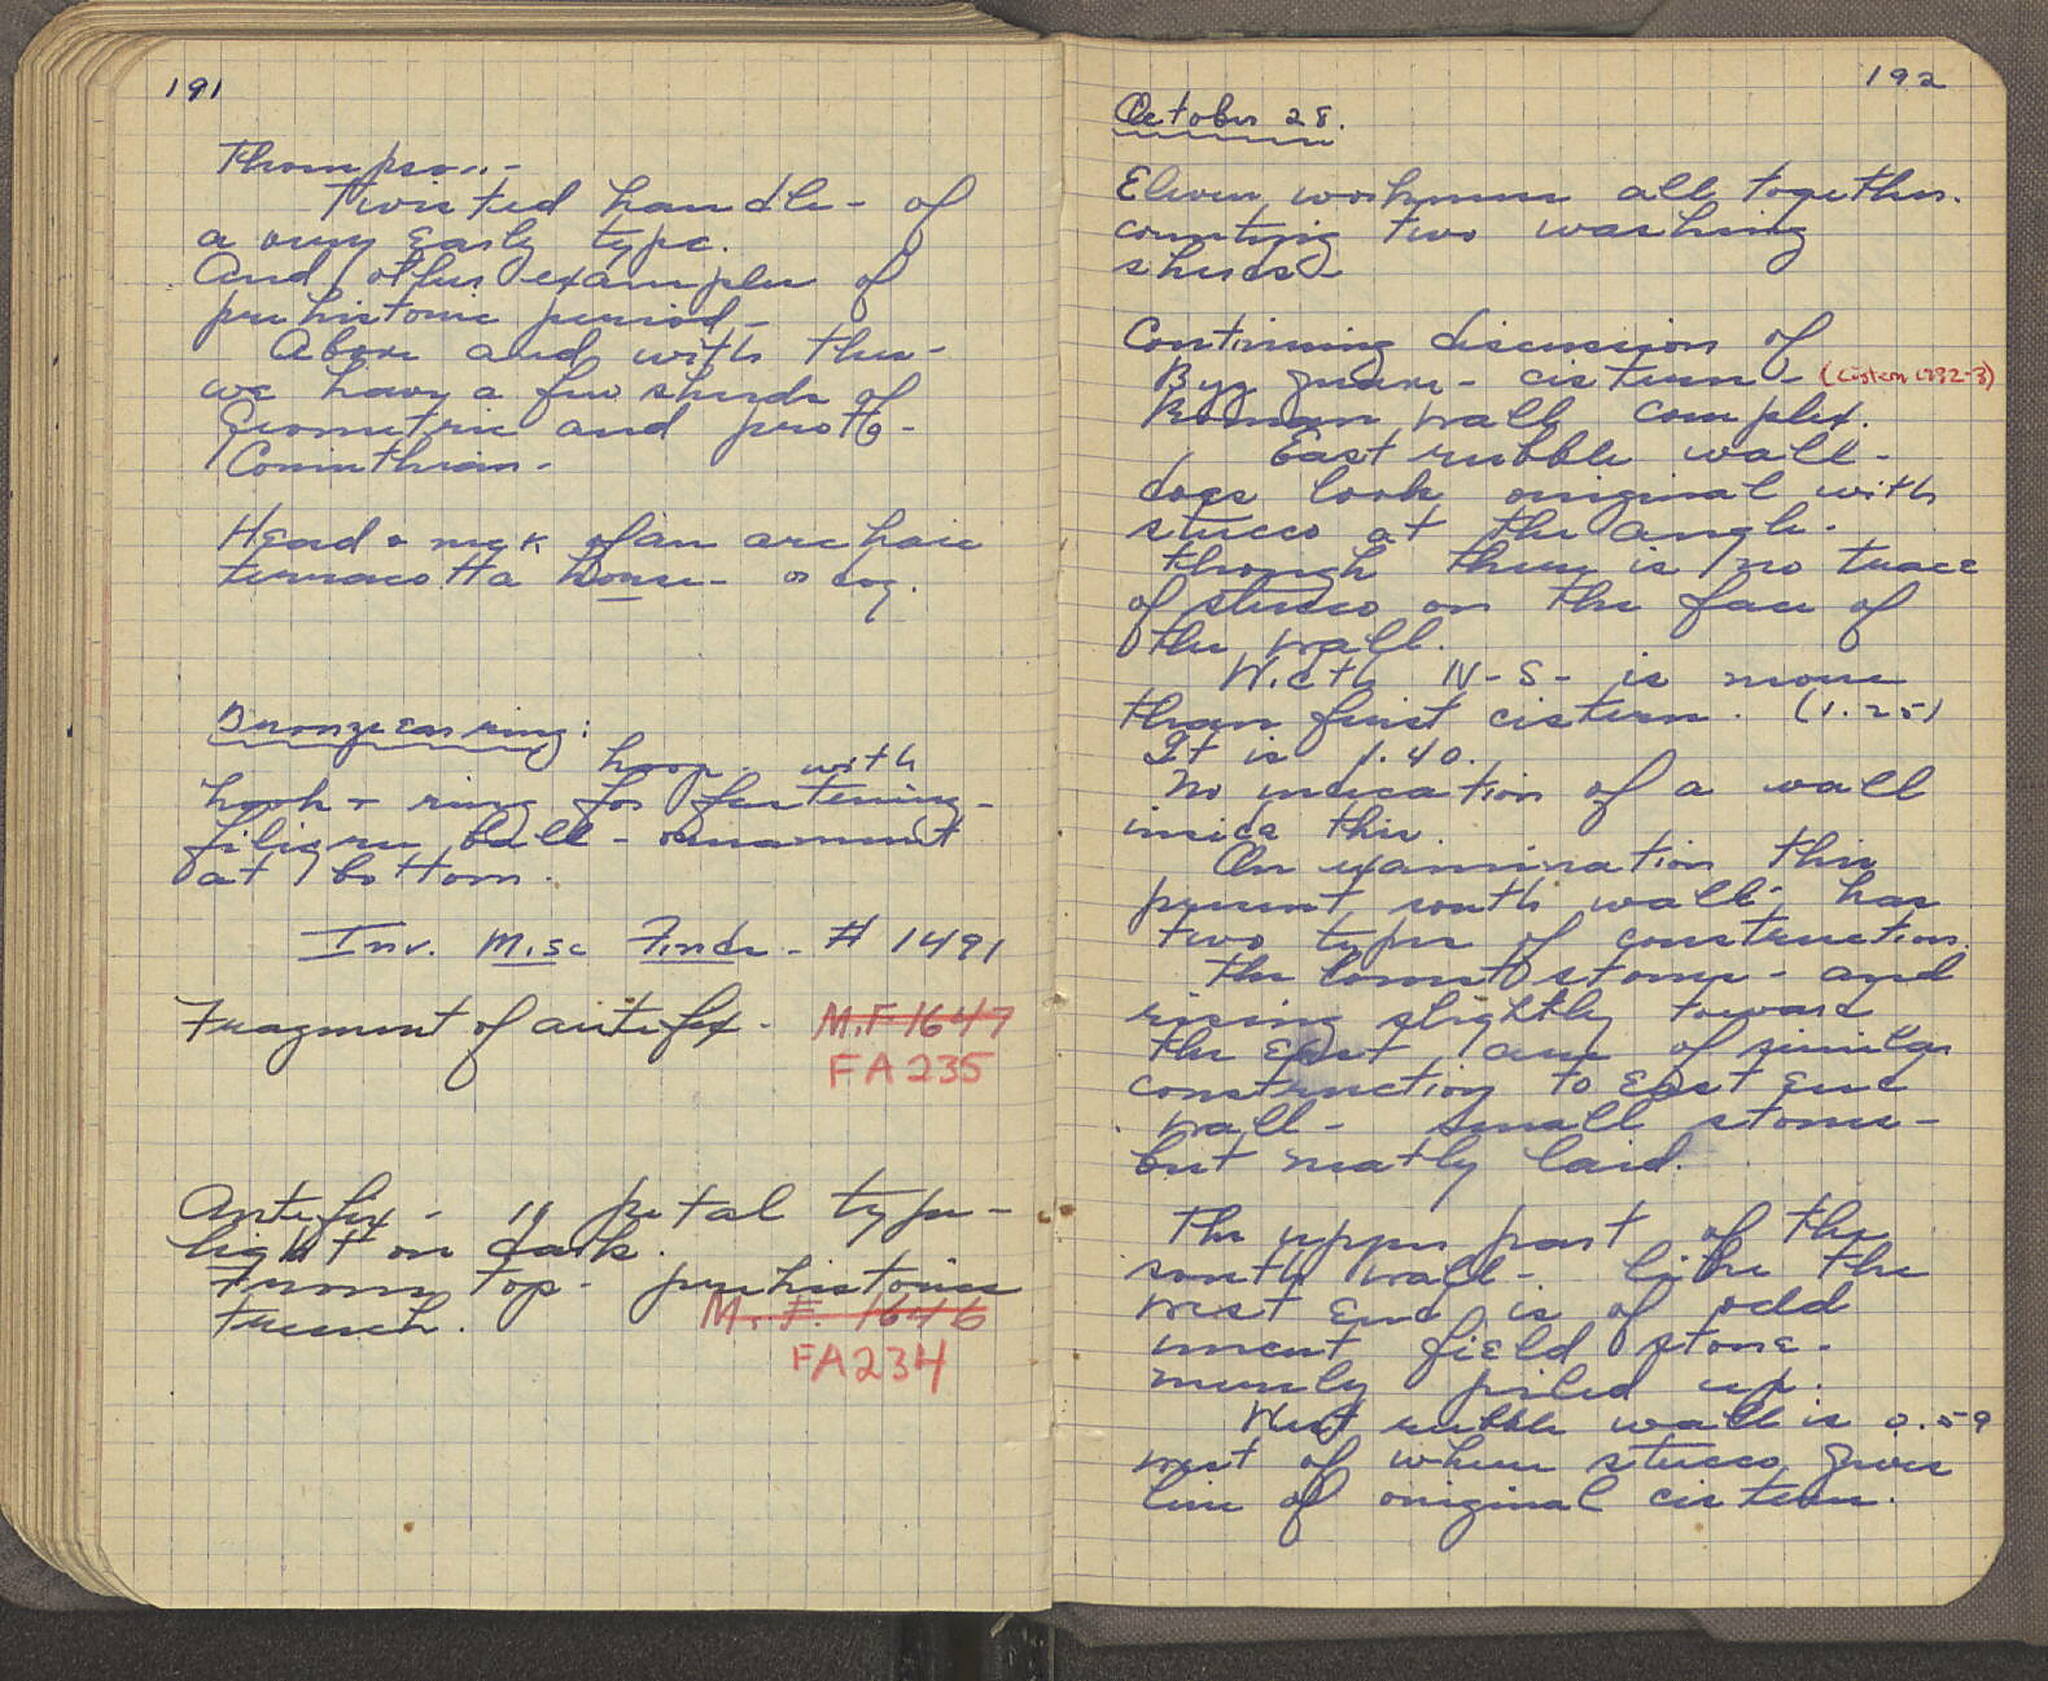 191
Thompson -
Twisted handle - of
a very Early type.
And other examples of
prehistoric period -
Above and with this -
we have a few sherds of
Geometric and proto-
Corinthian -
Head & neck of an archaic
terracotta horse - or dog.
Bronze Earring:
hoop - with
hook & ring for fastening -
filigree ball - ornament
at bottom.
Inv. Misc Finds - # 1491
Fragment of antefix - M.F 1647
FA 235
Antefix - petal type -
light on dark.
From top - prehistoric
trench. M. F. 1646
FA 234
192
October 28.
Eleven workmen all together.
counting two washing
sherds
Continuing discussion of
Byz grave - cistern - (Cistern 1932-3)
Roman wall complex.
East rubble wall -
does look original with
stucco at the angle -
though there is no trace
of stucco on the face of
the wall.
Width N-S- is more
than first cistern. (1.25)
It is 1.40.
No indication of a wall
inside this.
On examination this
present south wall - has
two types of construction.
The lowest stones - and
rising slightly toward
the East, are of similar
construction to East End
wall - small stones -
but neatly laid.
The upper part of the
south wall - like the
west End is of odd
uncut field stone -
merely piled up.
West rubble wall is 0.59
west of where stucco gives
line of original cistern.